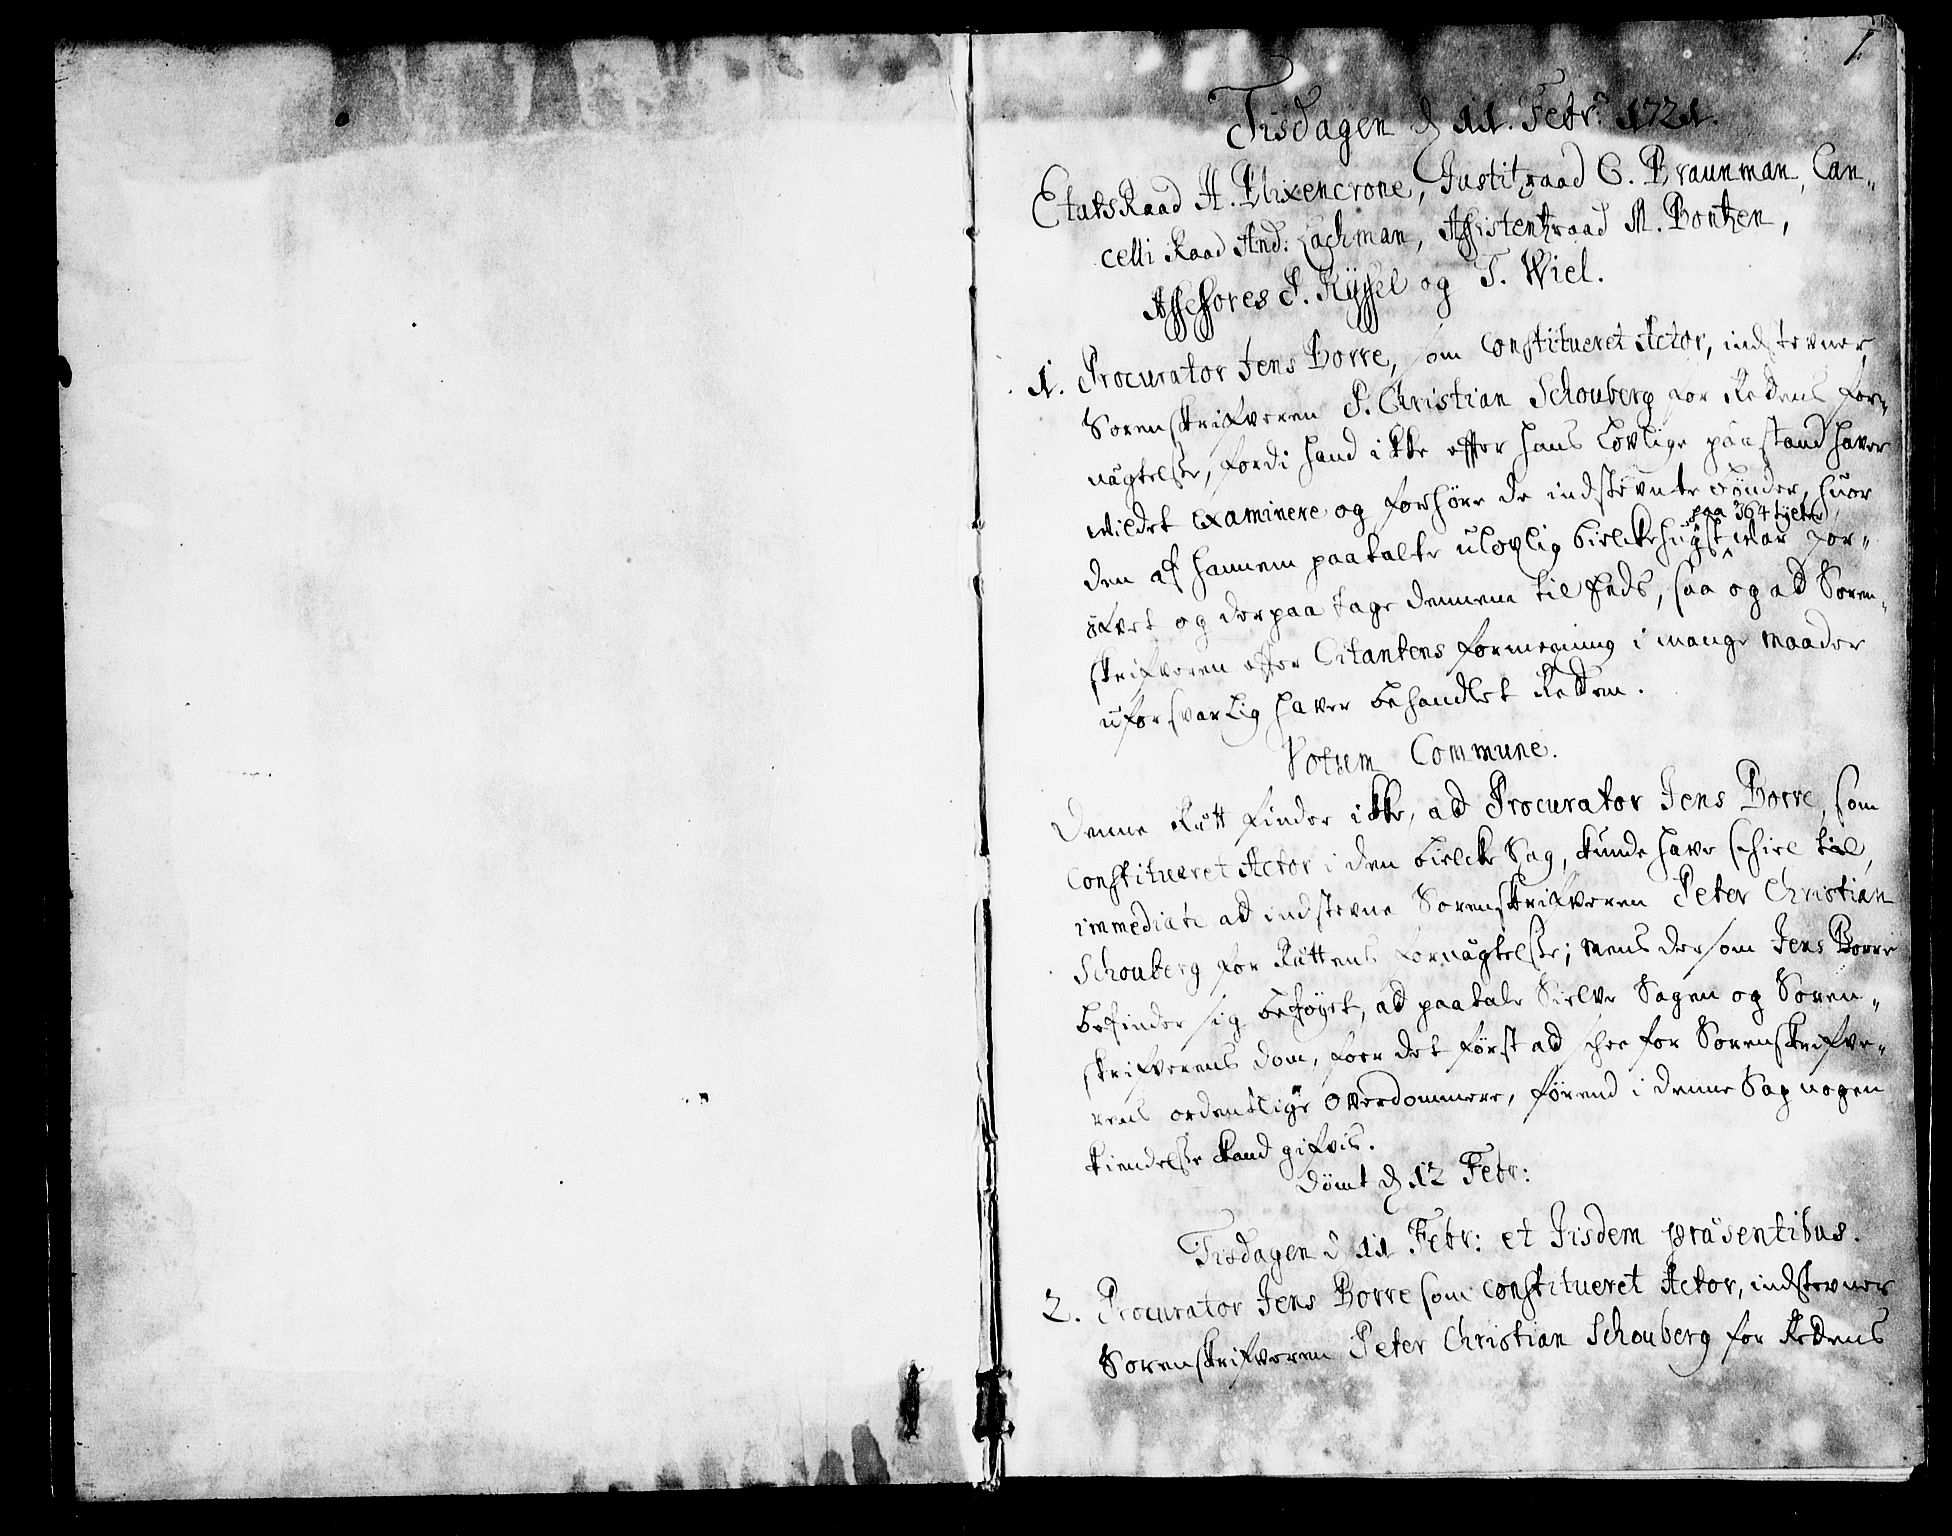 1.
Tisdagen d. 11. Febr. 1721.
EtatsRaad H. Plixencrone, Justitzraad C. Braunman, Can„
celli Raad And: Lachman, Assistentzraad M. Bontzen,
Assessores P. Ryssel og T. Wiel.
1. Procurator Jens Borre, som Constitueret Actor, indstevner
Sorenskrifveren P. Christian Schouberg for Rettens for„
nägtelsse, fordi hand ikke efter hans lovlige paastand haver
villet examinere og forhöre de indstevnte bönder, huor
paa 364 tylter
den af hannem paatalte ulovlig bielckehugst var for„
öfvet og derpaa tage dennem til Eeds, saa og ad Soren„
skrifveren efter Citantens formening i mange maader
uforsvarlig haver behandlet Retten.
Votum Commune.
Denne Rätt finder ikke, ad Procurator Jens Borre, som
Constitueret Actor i den bielcke Sag, kunde have schiel til,
immediatè ad indstevne Sorenskrifveren Peter Christian
Schouberg for Rättens fornägtelsse; mens dersom Jens Borre
befinder sig beföyet, ad paatale Sielve Sagen og Soren„
skrifverens dom, foer det först ad schee for Sorenskrifve„
rens ordentlige overdommere, förend i denne Sag nogen
kiendelsse kand gifvis.
Dömt d. 12 Febr:
Tisdagen d. 11 Febr: et Iisdem präsentibus.
2. Procurator Jens Borre som constitueret Actor, indstevner
Sorenskrifveren Peter Christian Schouberg for Rettens